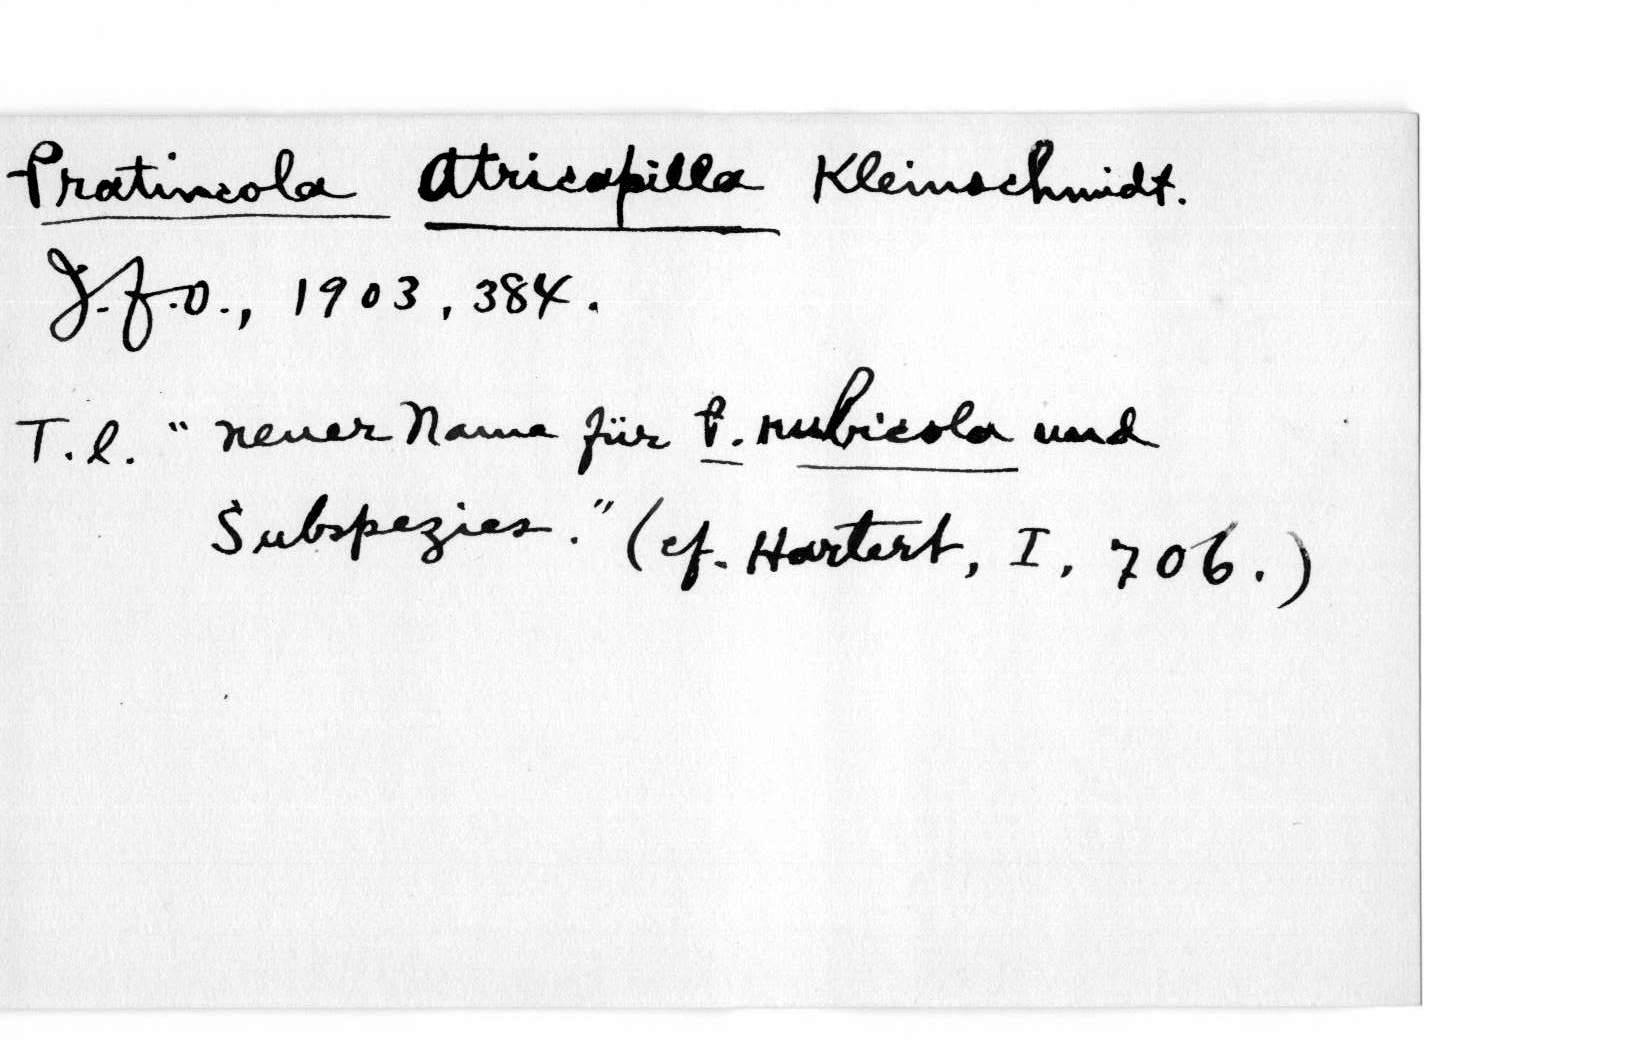 Pratincola Atricapilla Kleinschmidt.
J.f.O., 1903, 384.
T.l. "neuer Name für P. rubicola und
Subspezies." (cf. Hartert, I, 706.)